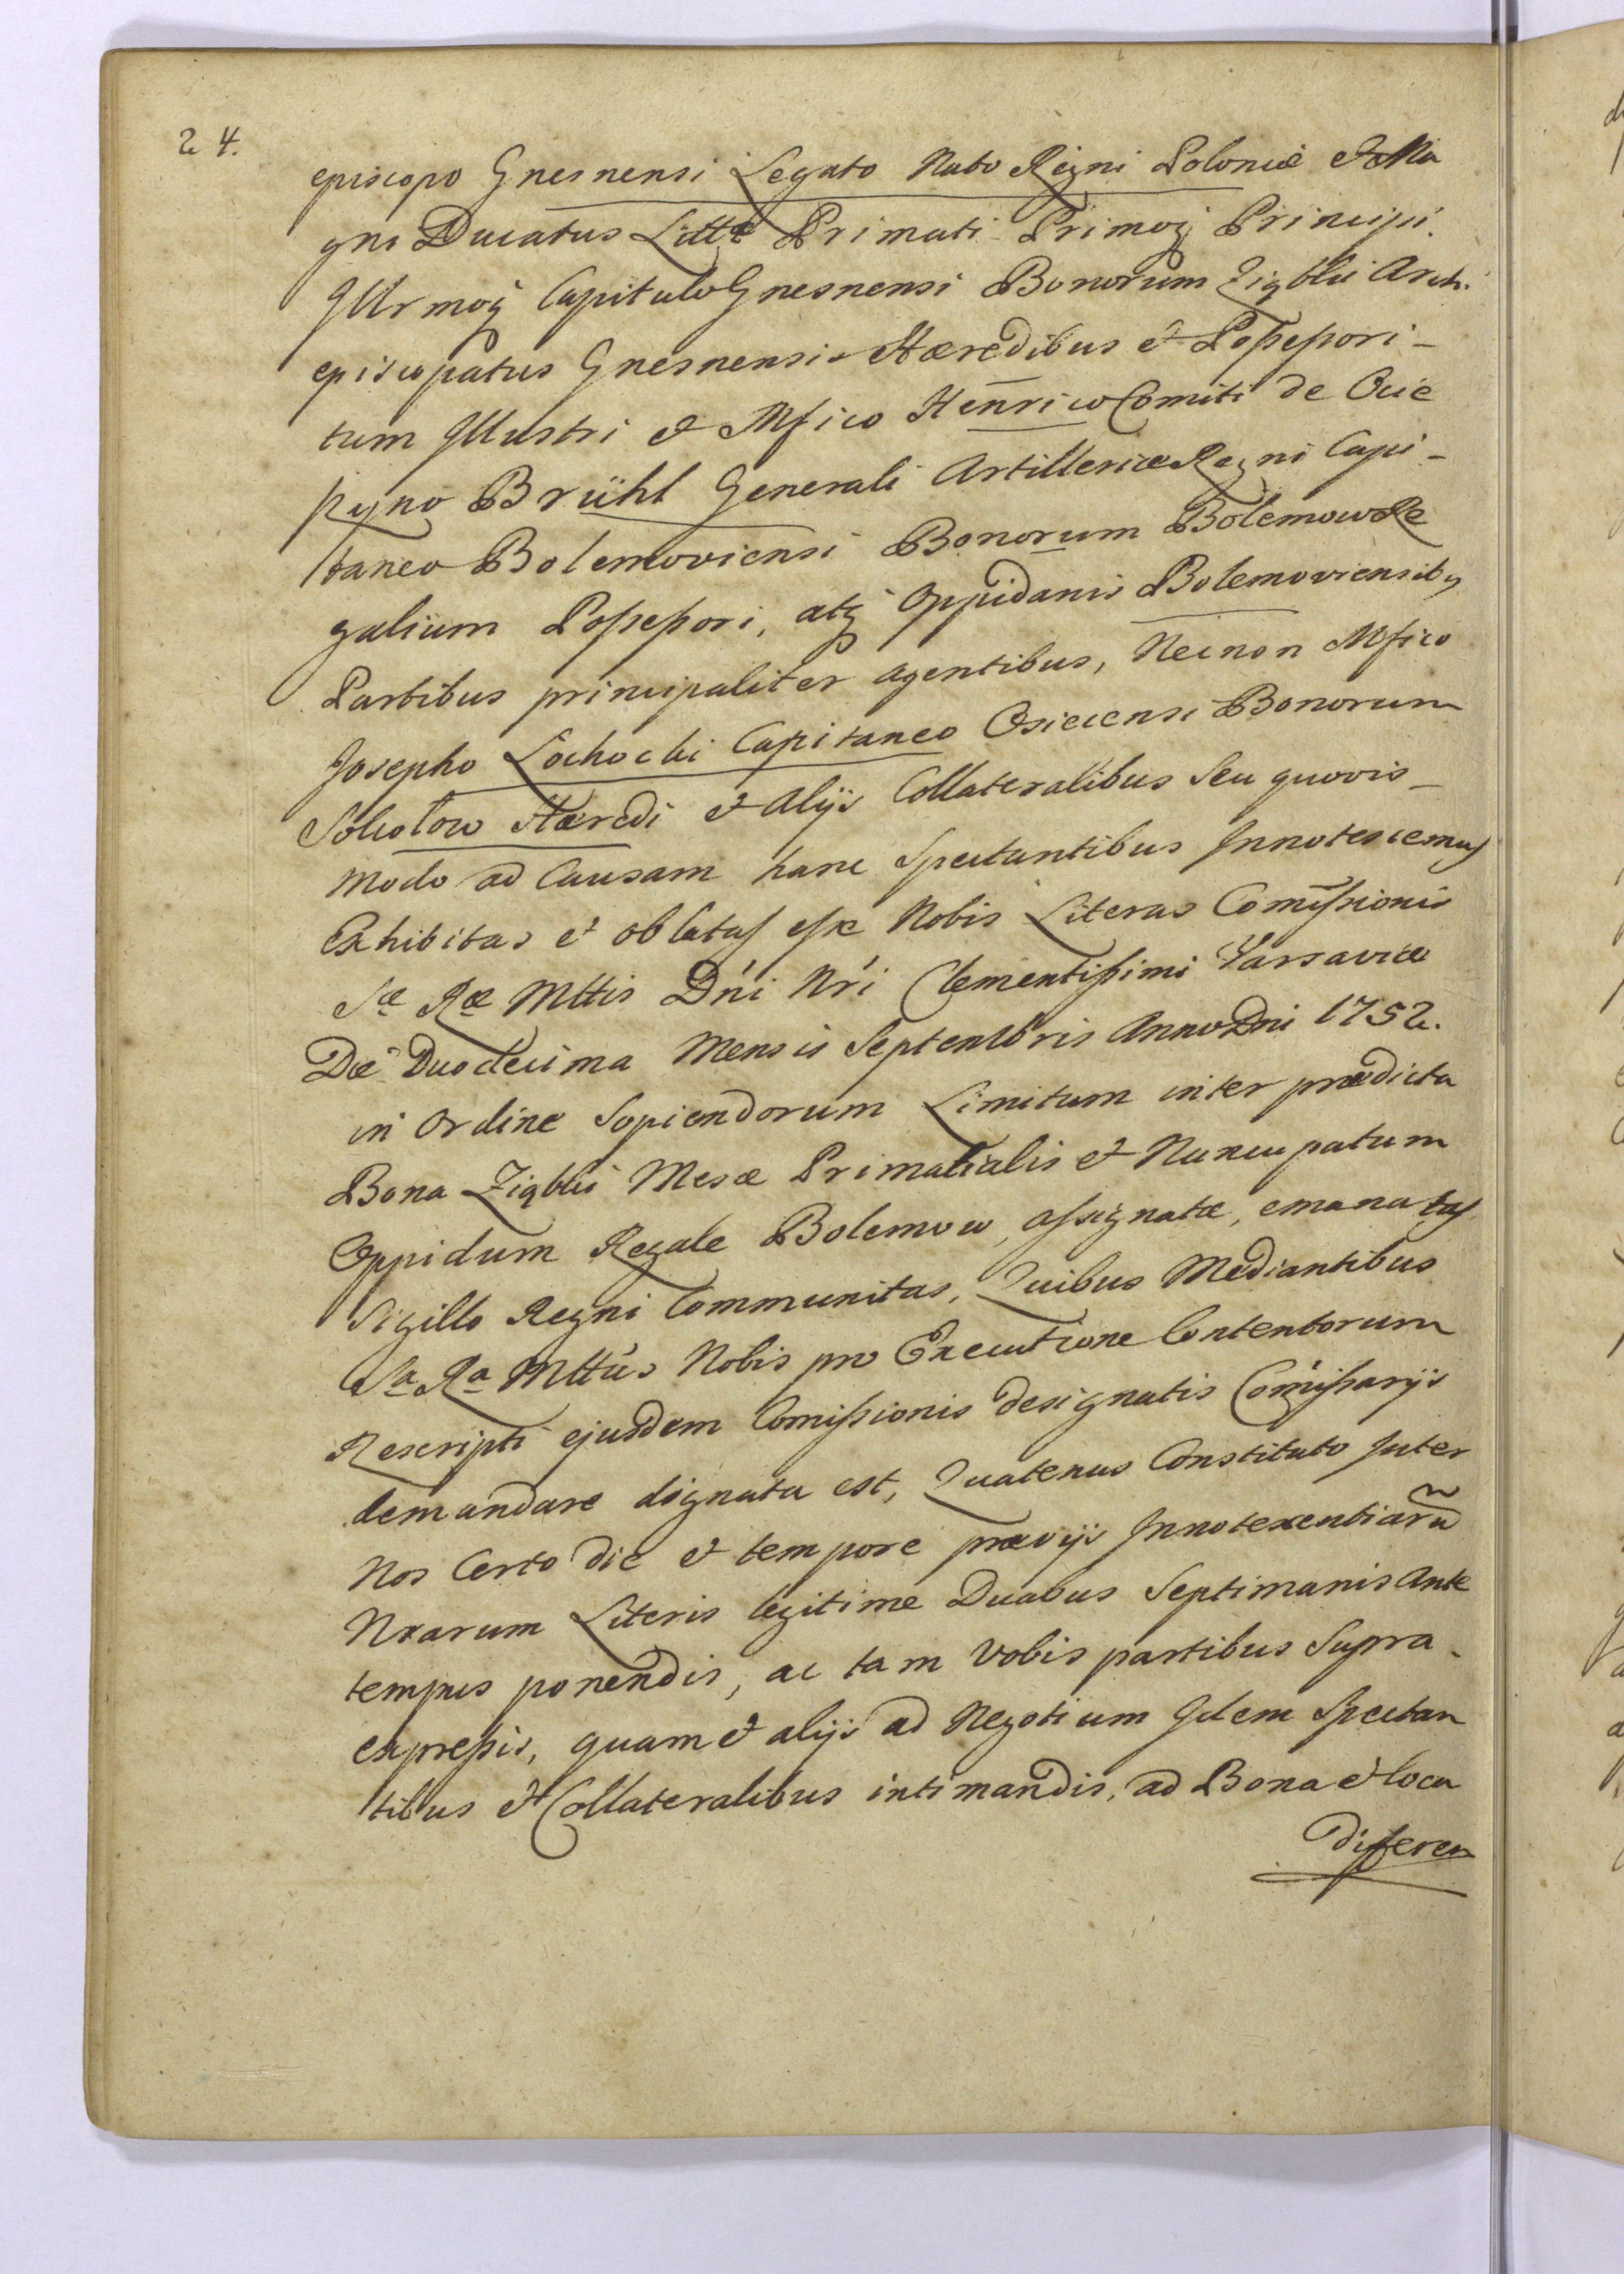 24.
episcopo Gnesnensi Legato Nato Regni Poloniæ et Ma
gni Ducatus Littæ Primati Primoq Principi
Illrmoq Capitulo Gnesnensi Bonorum Ziąbki Archi
episcopatus Gnesnensis Hæredibus et Possessori-
tum Illustri et Mfico Henrico Comiti de Ocie
szyno Brühl Generali Artilleriæ Regni Capi-
taneo Bolemoviensi Bonorum Bolemow Re
galium Possessori, atq Oppidanis Bolemoviensibq
Partibus principaliter agentibus, Necnon Mfico
Josepho Łochocki Capitaneo Osiecensi Bonorum
Sokołow Hæredi et Alijs Collateralibus Seu quovis-
modo ad Causam hanc Spectantibus Innotescemus
Exhibitas et oblatas esse Nobis Literas Comissionis
Sæ Ræ Mttis Dni Nri Clementissimi Varsaviæ
Die Duodecima Mensis Septembris Anno Dni 1752.
in Ordine Sopiendorum Limitum inter prædicta
Bona Ziąbki Mesæ Primatialis et Nuncupatum
Oppidum Regale Bolemow, assignatæ, emanatas
Sigillo Regni Communitas, Quibus Mediantibus
Sa Ra Mttus Nobis pro Executione Contentorum
Rescripti ejusdem Comissionis designatis Comissarijs
demandare dignata est, Quatenus Constituto Inter
Nos Certo die et tempore prævijs Innotexentiarũ
Nrarum Literis legitime Duabus Septimanis Ante
tempus ponendis, ac tam Vobis partibus Supra-
expressis, quam et alijs ad Negotium Idem Spectan
tibus et Collateralibus intimandis, ad Bona et loca
differen